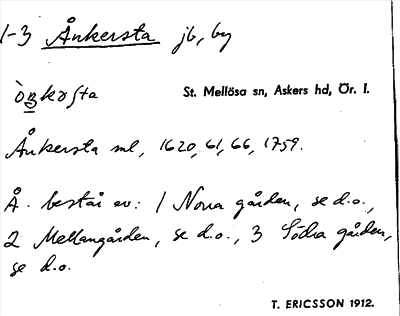 1-3 Ånkersta jb, by
St. Mellösa sn, Askers hd, Ör. l.
Ånkersta ml, 1620, 61, 66, 1759.
Å. består av: 1 Norra gården, se d.o.,
2 Mellangården, se d.o., 3 Södra gården,
se d.o.
T. ERICSSON 1912.